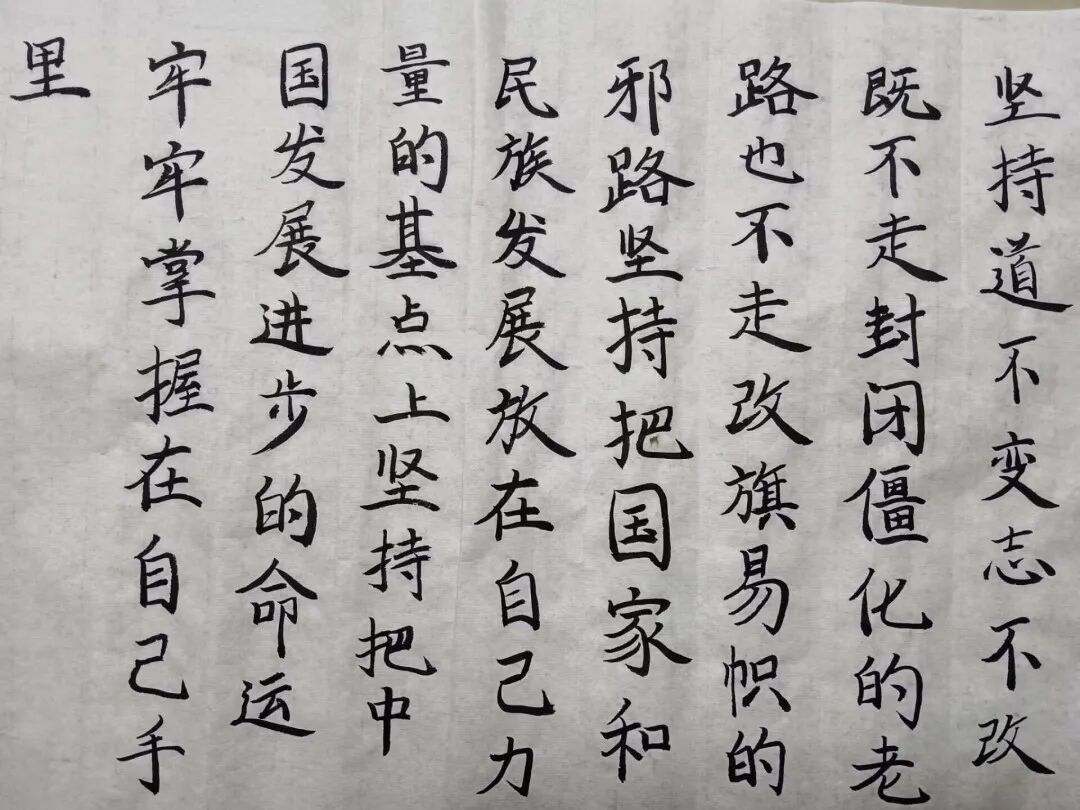 坚持道不变志不改
既不走封闭僵化的老
路也不走改旗易帜的
邪路坚持把国家和
民族发展放在自己力
量的基点上坚持把中
国发展进步的命运
牢牢掌握在自己手
里